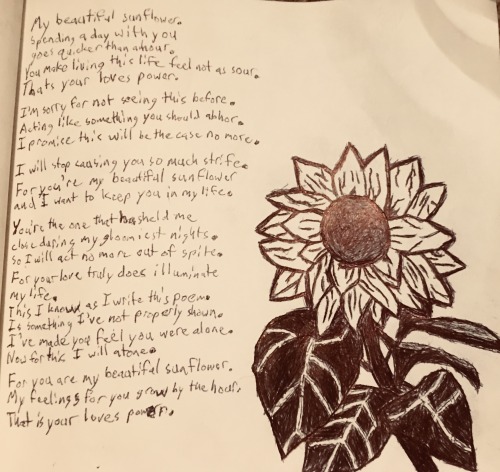 My beautiful sunflower.
Spending a day with you
goes quicker than an hour.
You make living this life feel not as sour.
Thats your loves power.
I'm sorry for not seeing this before.
Acting like something you should abhor.
I promise this will be the case no more.
I will stop causing you so much strife.
For you're my beautiful sunflower
and I want to keep you in my life.
You're the one that has held me
close during my gloomiest nights.
So I will act no more out of spite.
For your love truly does illuminate
my life.
This I know as I write this poem.
Is something I've not properly shown.
I've made you feel you were alone.
Now for this I will atone.
For you are my beautiful sunflower.
My feelings for you grow by the hour.
That is your loves power.